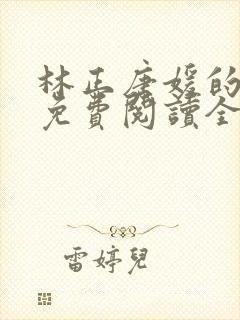 林正唐媛的
免費閱讀全
雷婷兒